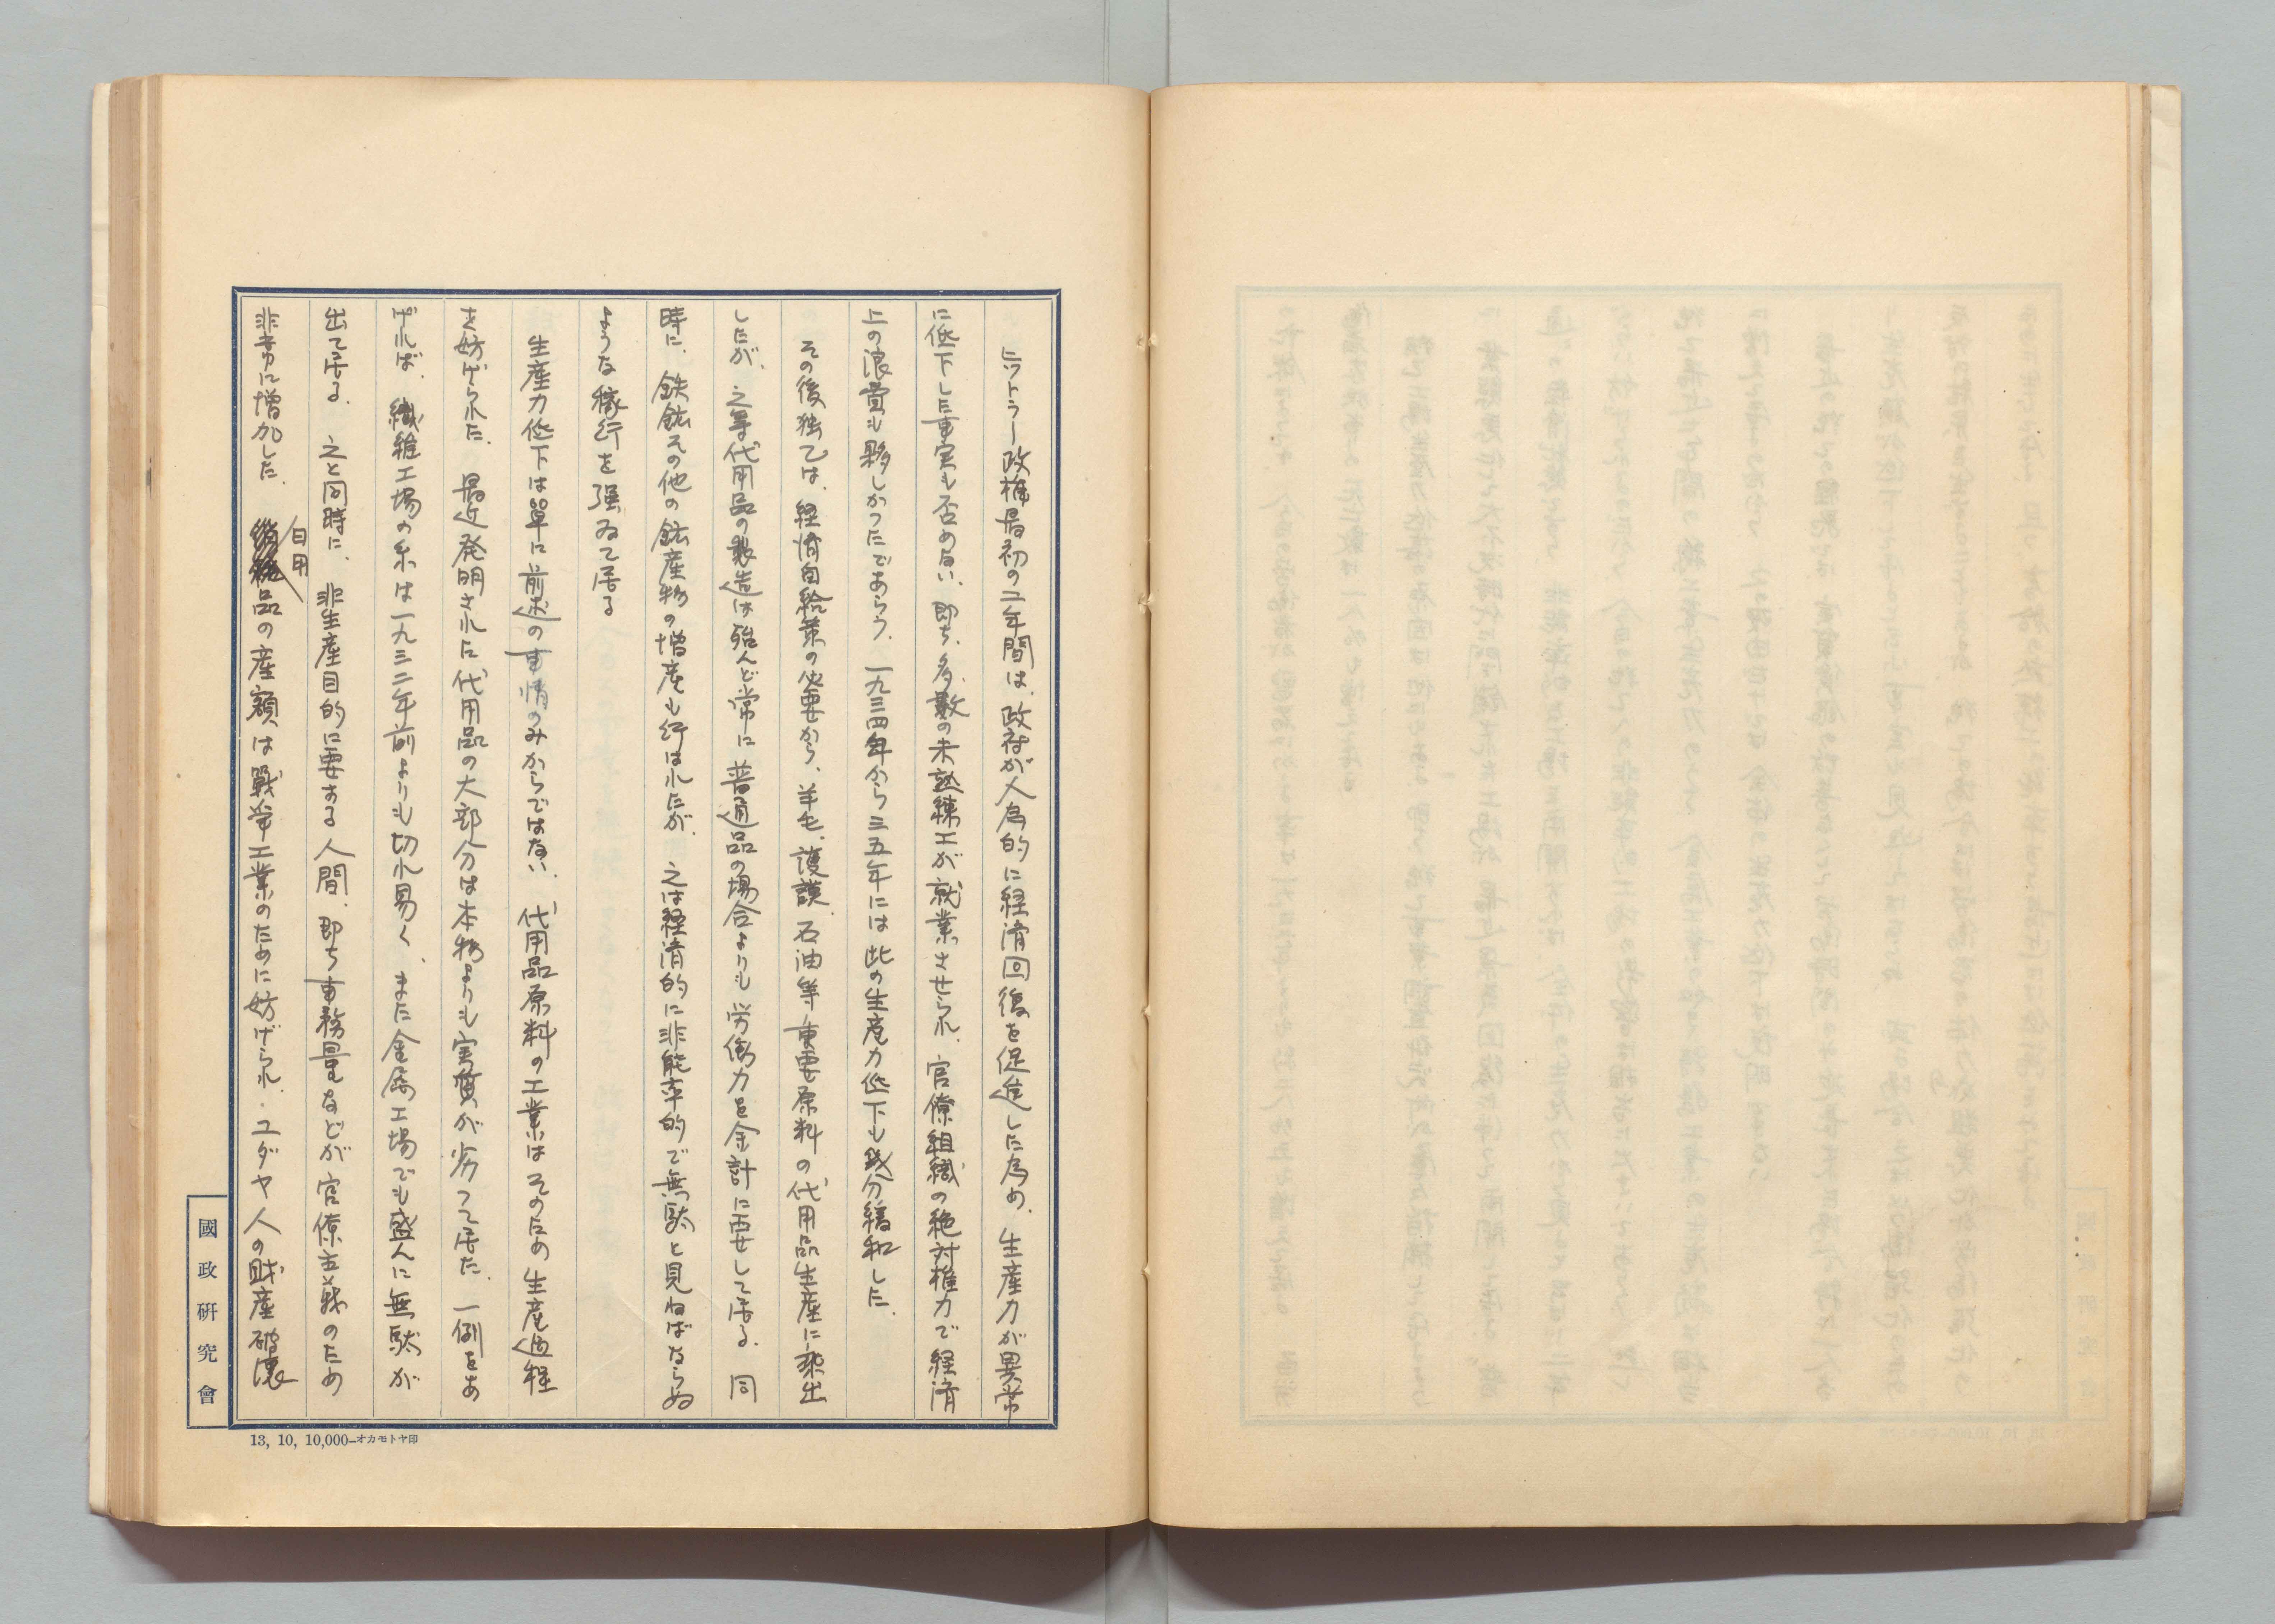 ヒットラー政権最初の二年間は、政府が人為的に経済回復を促進した為め、生産力が異常
に低下した事実も否めない、即ち、多数の未熟練工が就業させられ、官僚組織の絶対権力で経済
上の浪費も夥しかつたであらう、一九三四年から三五年には此の生産力低下も幾分緩和した、
その後独乙は、経済自給策の必要から、羊毛、護謨、石油等重要原料の代用品生産に乗出
したが、之等代用品の製造は殆んど常に普通品の場合よりも労働力を余計に要して居る、同
時に、鉄鉱その他の鉱産物の増産も行はれたが、之は経済的に非能率的で無駄と見ねばならぬ
ような稼行を強ゐて居る
生産力低下は單に前述の事情のみからではない、代用品原料の工業はそのため生産過程
を妨げられた、最近発明された代用品の大部分は本物よりも実質が劣つて居た、一例をあ
げれば、繊維工場の糸は一九三二年前よりも切れ易く、また金属工場でも盛んに無駄が
出て居る、之と同時に、非生産目的に要する人間、即ち事務量などが官僚主義のため
非常に増加した、日用品の産額は戦争工業のために妨げられ、ユダヤ人の財産破壊
國政研究會
13, 10, 10,000—オカモトヤ印